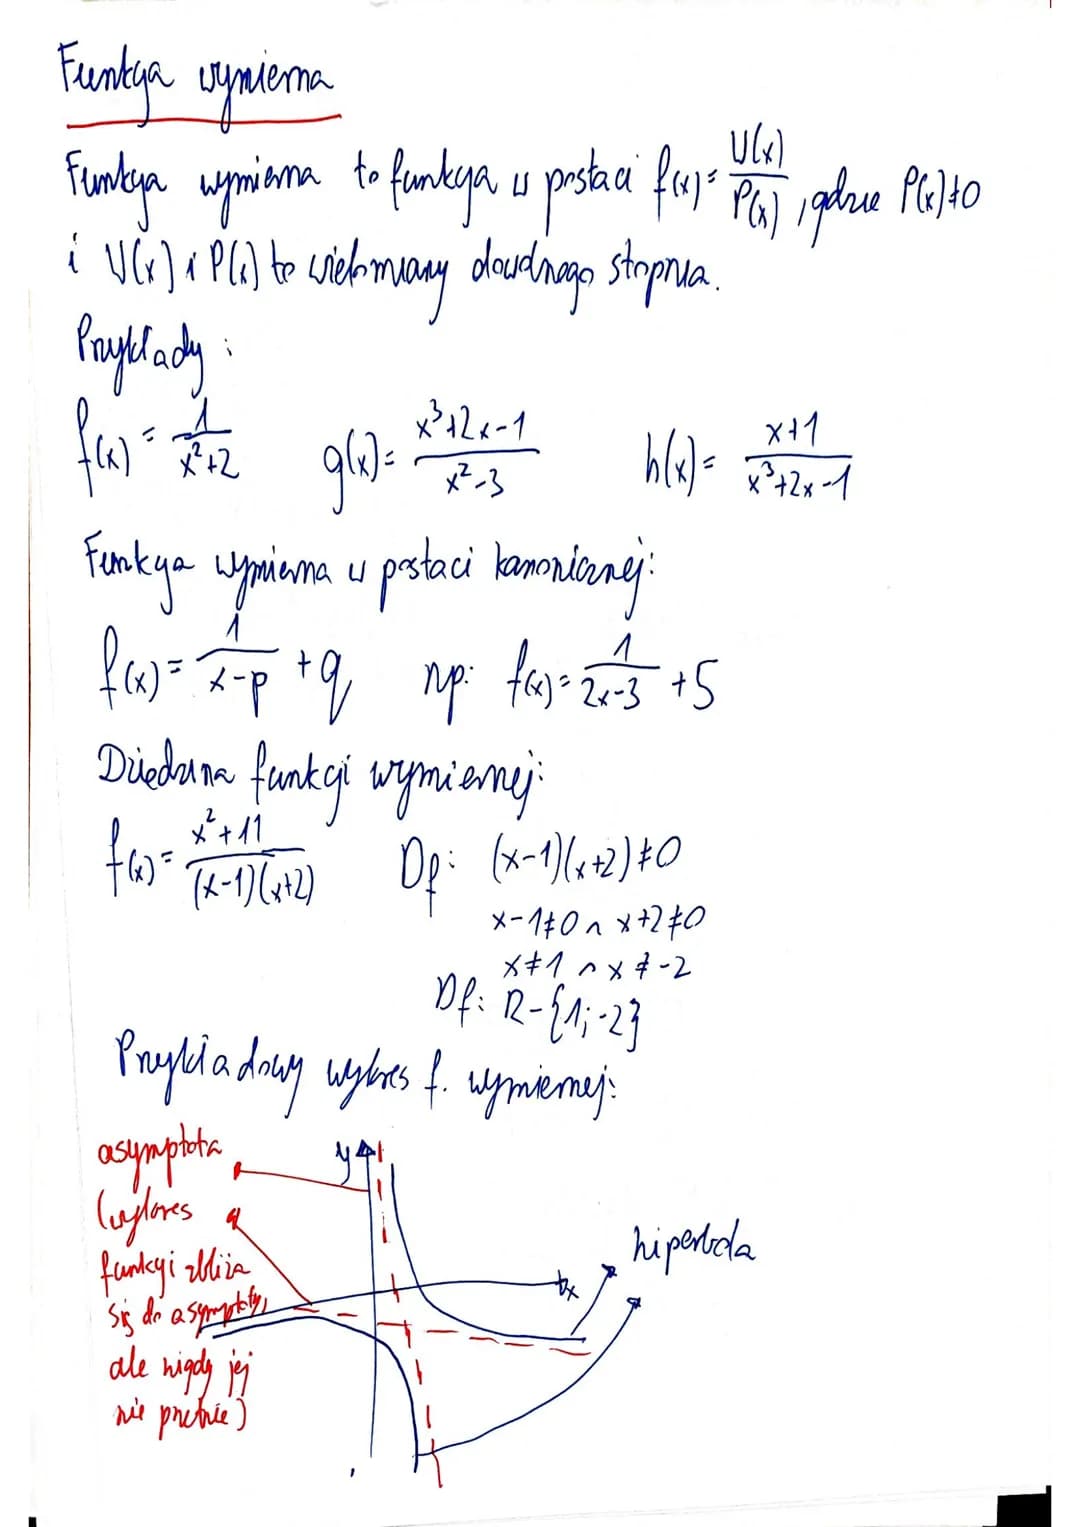 Funkcja wymierna
Funkcja wymierna to funkcja w postaci f(x)= U(x)/P(x) , gdzie P(x)≠0
i U(x) i P(x) to wielomiany dowolnego stopnia.
Przykłady:
f(x)= 1/(x²+2) g(x)= (x³+2x-1)/(x²-3) h(x)= (x+1)/(x³+2x-1)
Funkcja wymierna w postaci kanonicznej:
f(x)= 1/(x-p) +q np: f(x)= 1/(2x-3) +5
Dziedzina funkcji wymiernej:
f(x)= (x²+11)/((x-1)(x+2)) Df: (x-1)(x+2)≠0
x-1≠0 ∧ x+2≠0
x≠1 ∧ x≠-2
Df: R-{1;-2}
Przykładowy wykres f. wymiernej:
asymptota
(wykres
funkcji zbliża
się do asymptoty,
ale nigdy jej
nie przetnie)
y
x
hiperbola